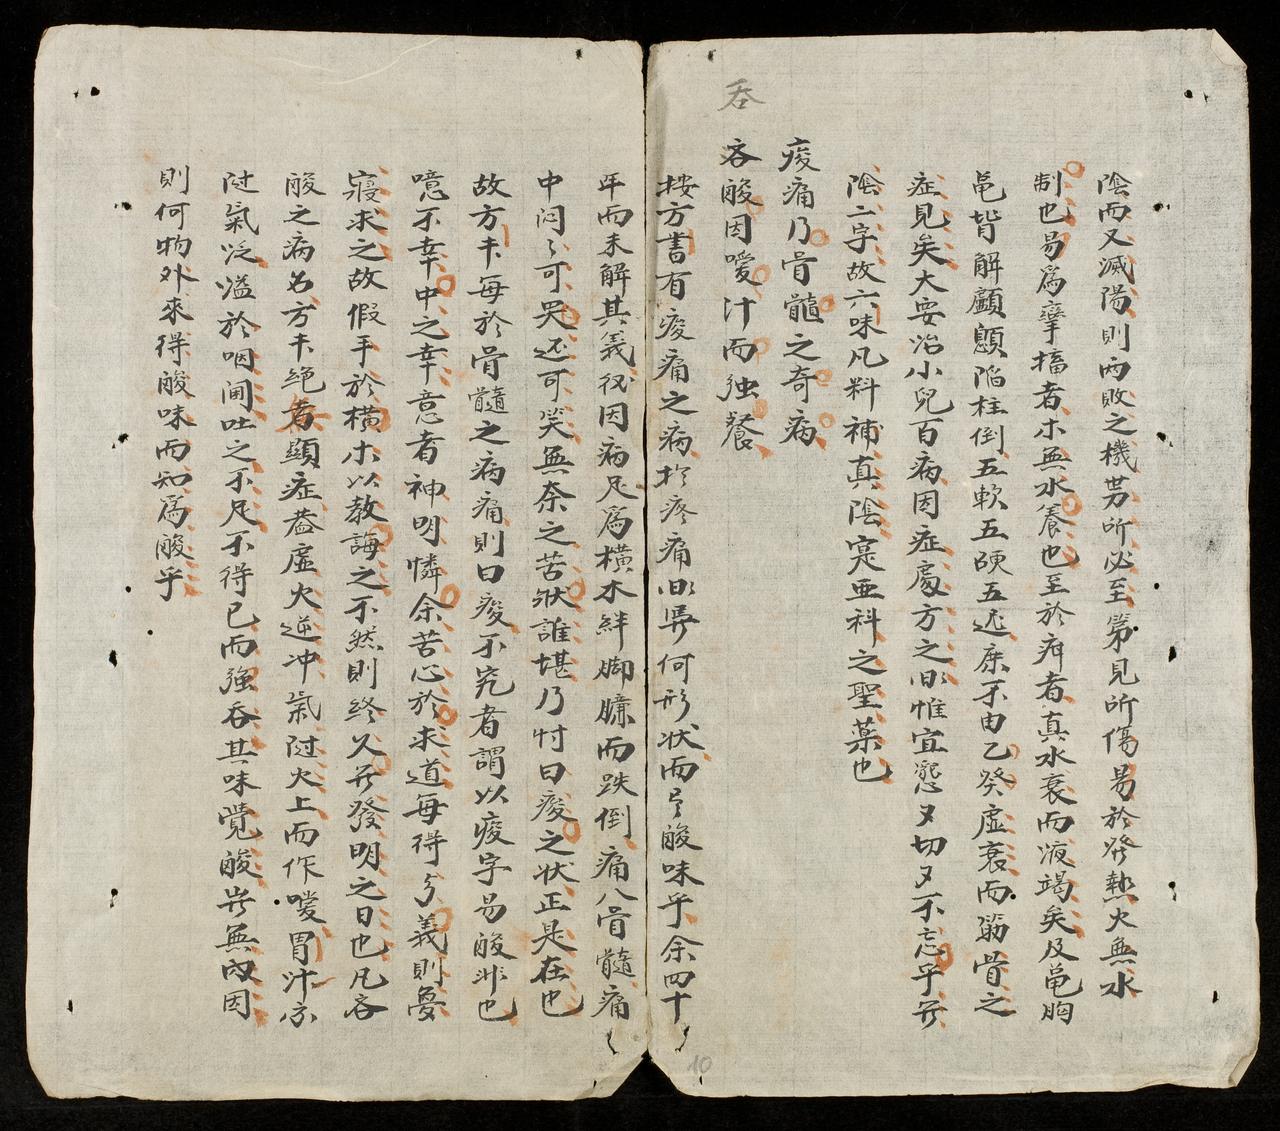 陰而又滅陽則兩敗之機勢所必至第見所傷易於發熱火無水
制也易為孿搐者木無水養也至於疳者真水衰而液竭矣及龜胸
龜背解顱顖陷柱倒五軟五硬五遲庶不由乙癸虛衰而筋骨之
症見矣大要治小兒百病因症處方之際惟宜戀又切又不忘乎
陰二字故六味凡料補真陰寔亜科之聖藥也
痠痛乃骨髓之奇病
吞
吝酸因噯汁而強餐
按方書有痠痛之病於疼痛何形狀而酸味乎余四十
年而未解其義後因病足為橫木絆脚臁而跌倒痛入骨髓痛
中悶〻可哭还可笑無奈之苦狀誰堪乃忖曰痠之状正是在也
故方书每於骨髓之病痛則曰痠不究者謂以痠字易酸非也
噫不幸中之幸意者神明憐余苦心於求道每得義則憂
寢求之故假手於橫木以教誨之不然則終久發明之日也凡吝
酸之病名方书絕者顯症盖虛火逆冲氣隨火上而作噯胃汁亦
隨氣泛溢於咽間吐之不足不得已而強吞其味覺酸無內因
則何物外來得酸味而知為酸乎
10